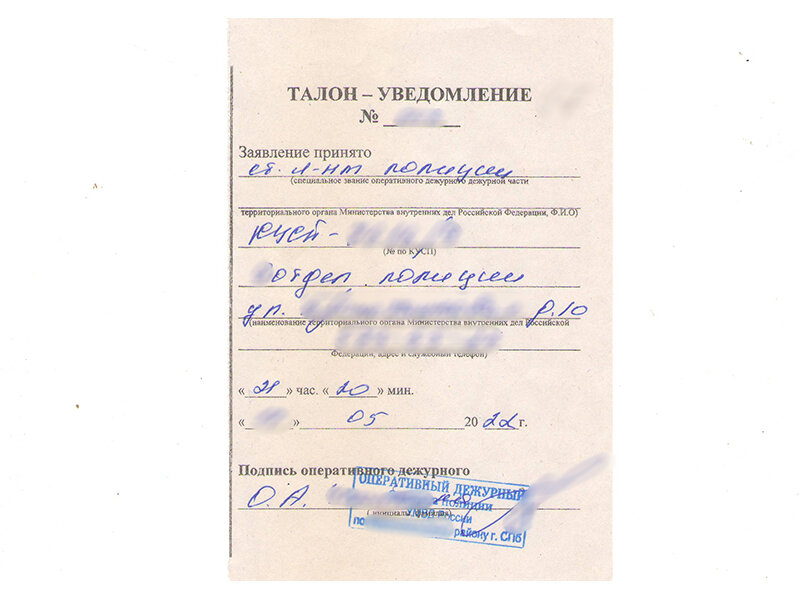 ТАЛОН – УВЕДОМЛЕНИЕ
№
Заявление принято
ст. л-нт полиции
(специальное звание оперативного дежурного дежурной части
территориального органа Министерства внутренних дел Российской Федерации, Ф.И.О)
КУСП-
(№ по КУСП)
отдел полиции
ул. д.10
(наименование территориального органа Министерства внутренних дел Российской
Федерации, адрес и служебный телефон)
« 21 » час. « 20 » мин.
« » 05 2022 г.
Подпись оперативного дежурного
О.А.
(инициалы, фамилия)
ОПЕРАТИВНЫЙ ДЕЖУРНЫЙ
полиции
УМВД России
по району г. СПб